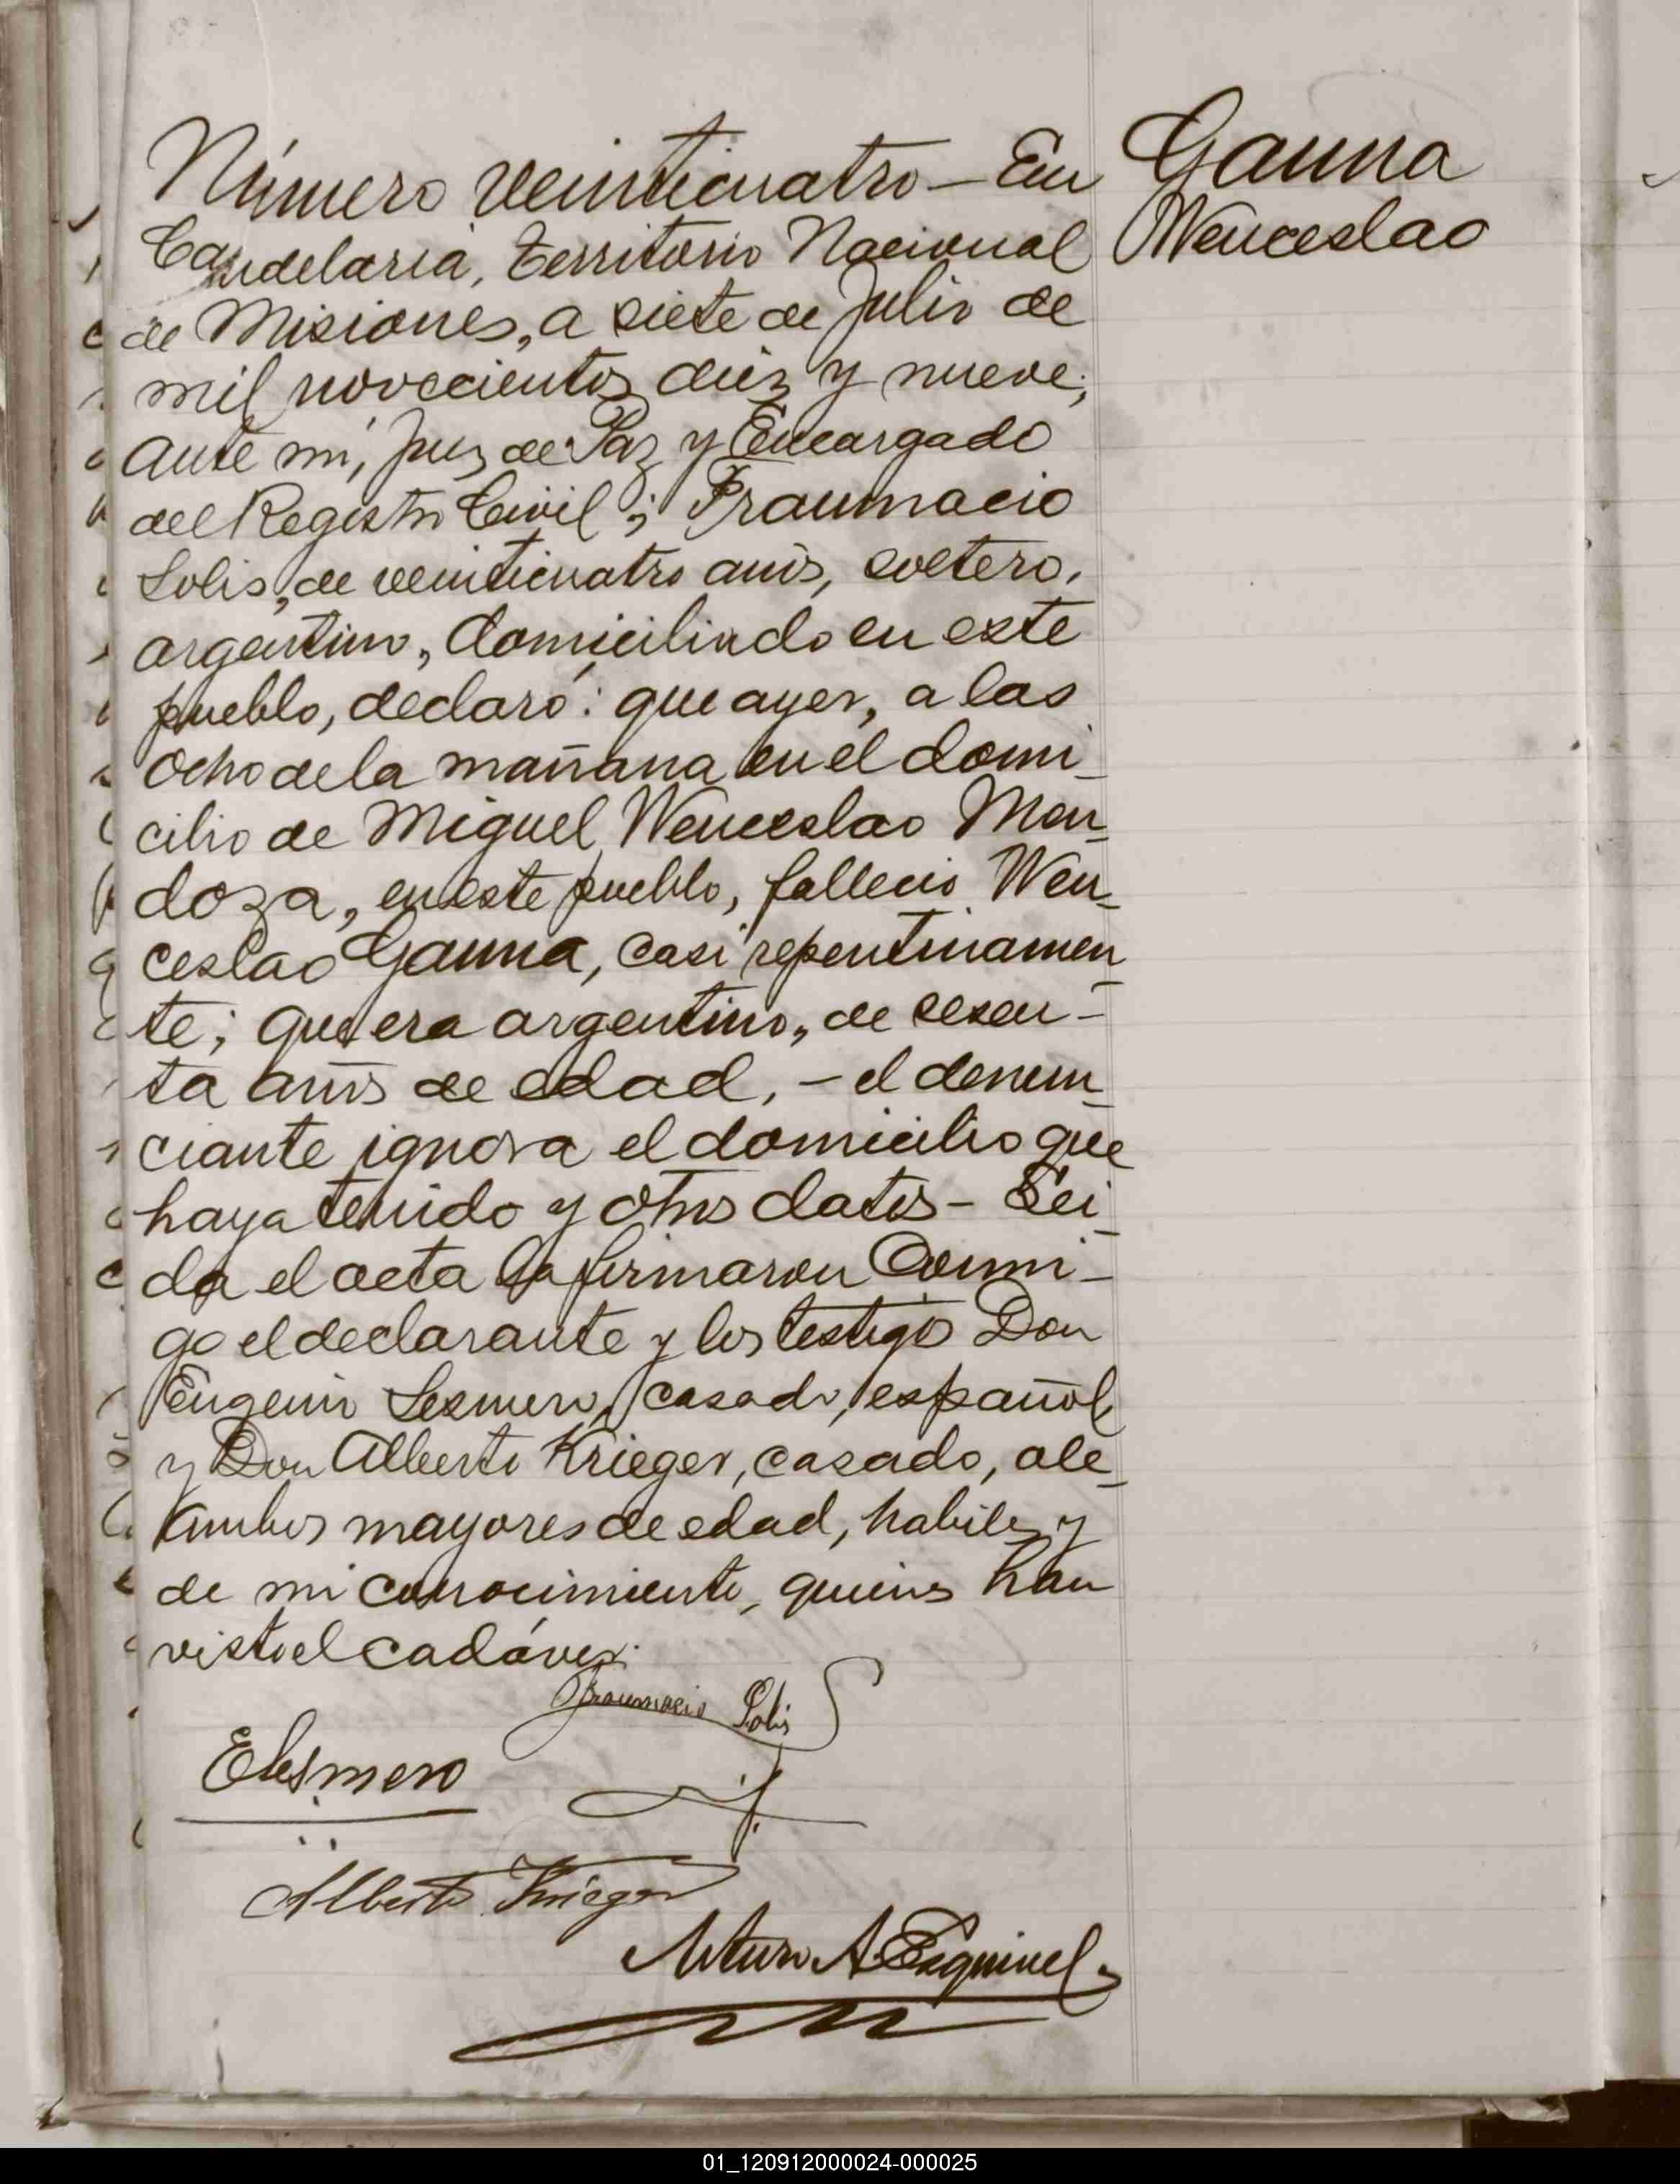 Número veinticuatro — En
Candelaria, Territorio Nacional
de Misiones, a siete de Julio de
mil novecientos diez y nueve;
ante mi, Juez de Paz y Encargado
del Registro Civil; Fraumacio
Solis, de veinticuatro años, soltero,
argentino, domiciliado en este
pueblo, declaró: que ayer, a las
ocho de la mañana en el domi-
cilio de Miguel Wenceslao Men-
doza, en este pueblo, fallecio Wen-
ceslao Gauna, casi repentinamen-
te; que era argentino, de sesen-
ta años de edad, - el denun-
ciante ignora el domicilio que
haya tenido y otros datos - Lei-
da el acta la firmaron Conmi-
go el declarante y los testigos Don
Eugenio Lesmero, casado, español,
y Don Alberto Krieger, casado, ale-
Ambos mayores de edad, habiles y
de mi conocimiento, quienes han
visto el cadáver.
Fraumacio Solis
ELesmero
Alberto Krieger
Arturo A. Esquivel
Gauna
Wenceslao
01_120912000024-000025